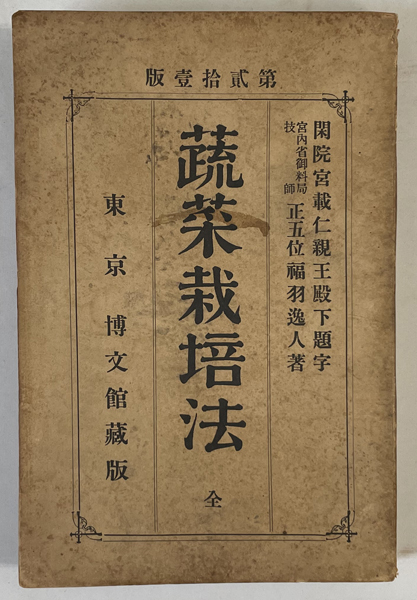 第貳拾壹版
閑院宮載仁親王殿下題字
宮內省御料局技師 正五位福羽逸人著
蔬菜栽培法 全
東京 博文館藏版